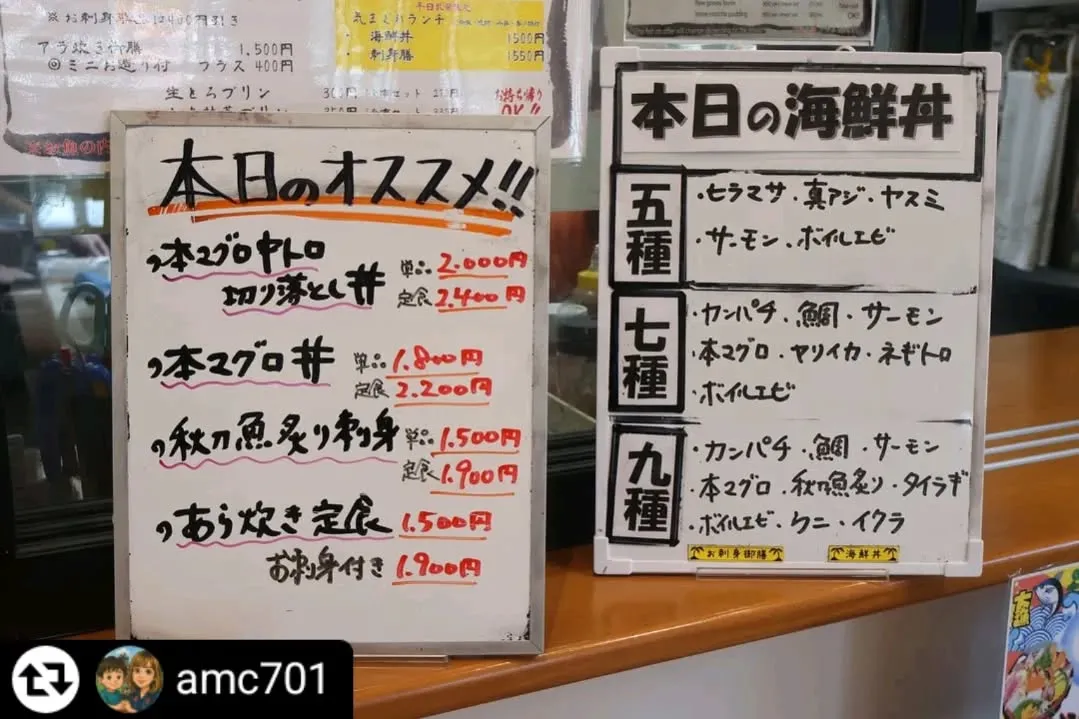 ※お刺身
アラ炊き御膳 1,500円
◎ミニお造り付 プラス 400円
生とろプリン
平日数量限定
気まぐれランチ
・海鮮丼 1500円
・刺身膳 1550円
お持ち帰り
OK!!
本日のオススメ!!
本マグロ中トロ
切り落とし丼 単品 2.000円
定食 2.400円
本マグロ丼 単品 1.800円
定食 2.200円
秋刀魚炙り刺身 単品 1.500円
定食 1.900円
あら炊き定食 1.500円
お刺身付き 1.900円
本日の海鮮丼
五種
・ヒラマサ・真アジ・ヤスミ
・サーモン・ボイルエビ
七種
・カンパチ・鯛・サーモン
・本マグロ・ヤリイカ・ネギトロ
・ボイルエビ
九種
・カンパチ・鯛・サーモン
・本マグロ・秋刀魚炙り・タイラギ
・ボイルエビ・ウニ・イクラ
お刺身御膳 海鮮丼
amc701